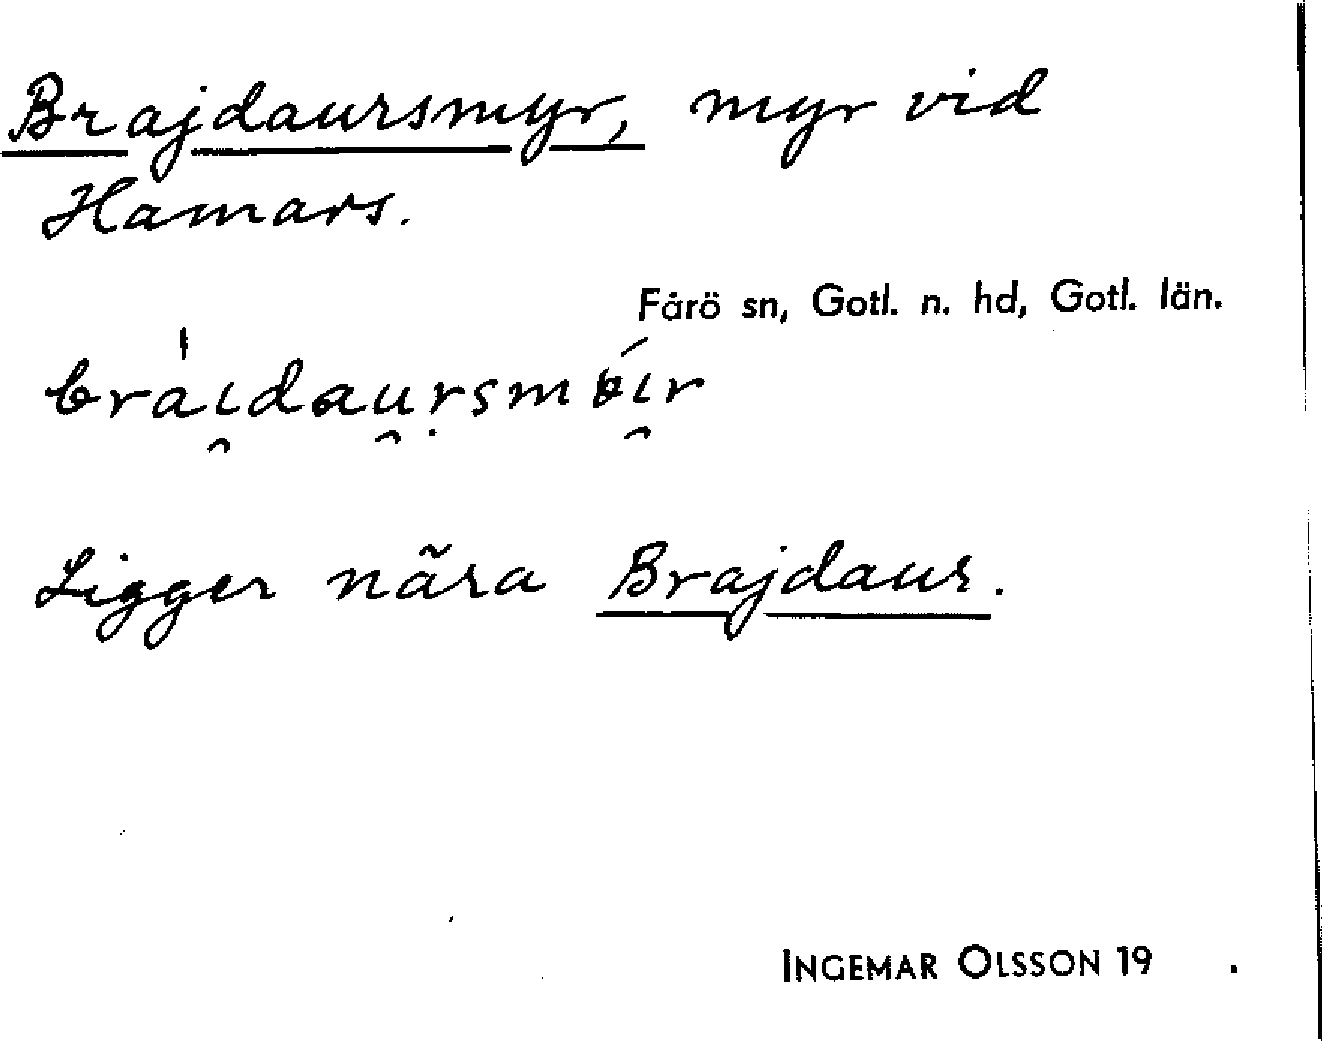 Brajdaursmyr, myr vid
Hamars.
Fårö sn, Gotl. n. hd, Gotl. län.
Ligger nära Brajdaur.
INGEMAR OLSSON 19 .